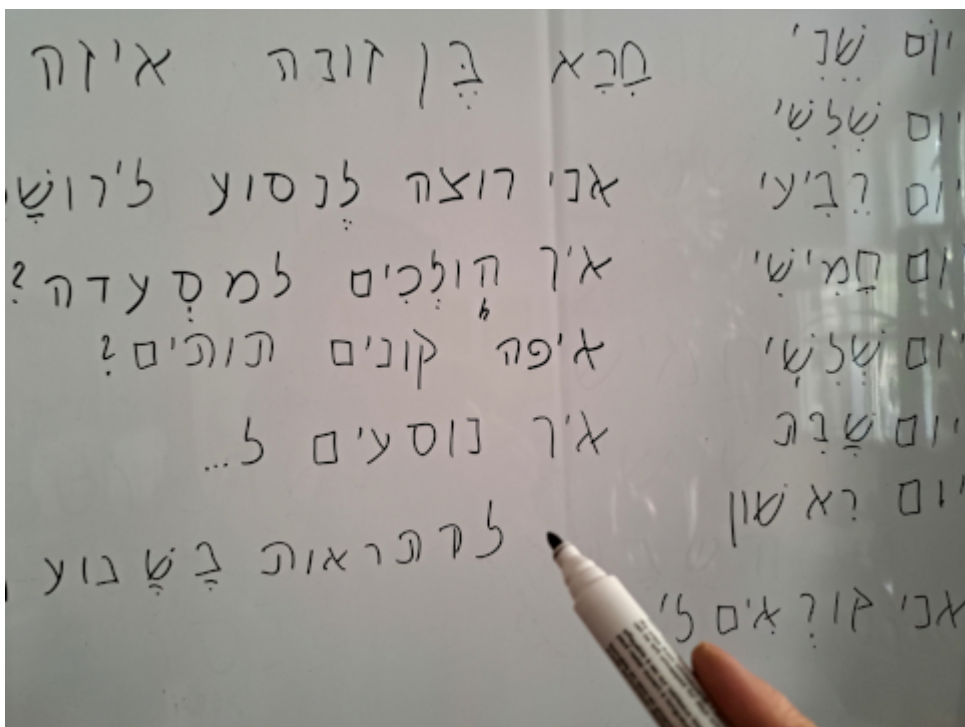 יוֹם שֵׁנִי
יום שְׁלִשִׁי
יום רֵבִיעי
יום חֲמִישִׁי
יום שְׁלִשָׁי
יום שַׁבִּת
יום רִאשׁון
אני קוֹרְאִים לי
חָרַא בֶּן זונה איזה
אני רוצה לֶנסוע לירוּשָׁ
איך הָולְכִים למסְעדה?
איפה קונים תותים?
איך נוסעים ל...
בָּשֶׁבוע